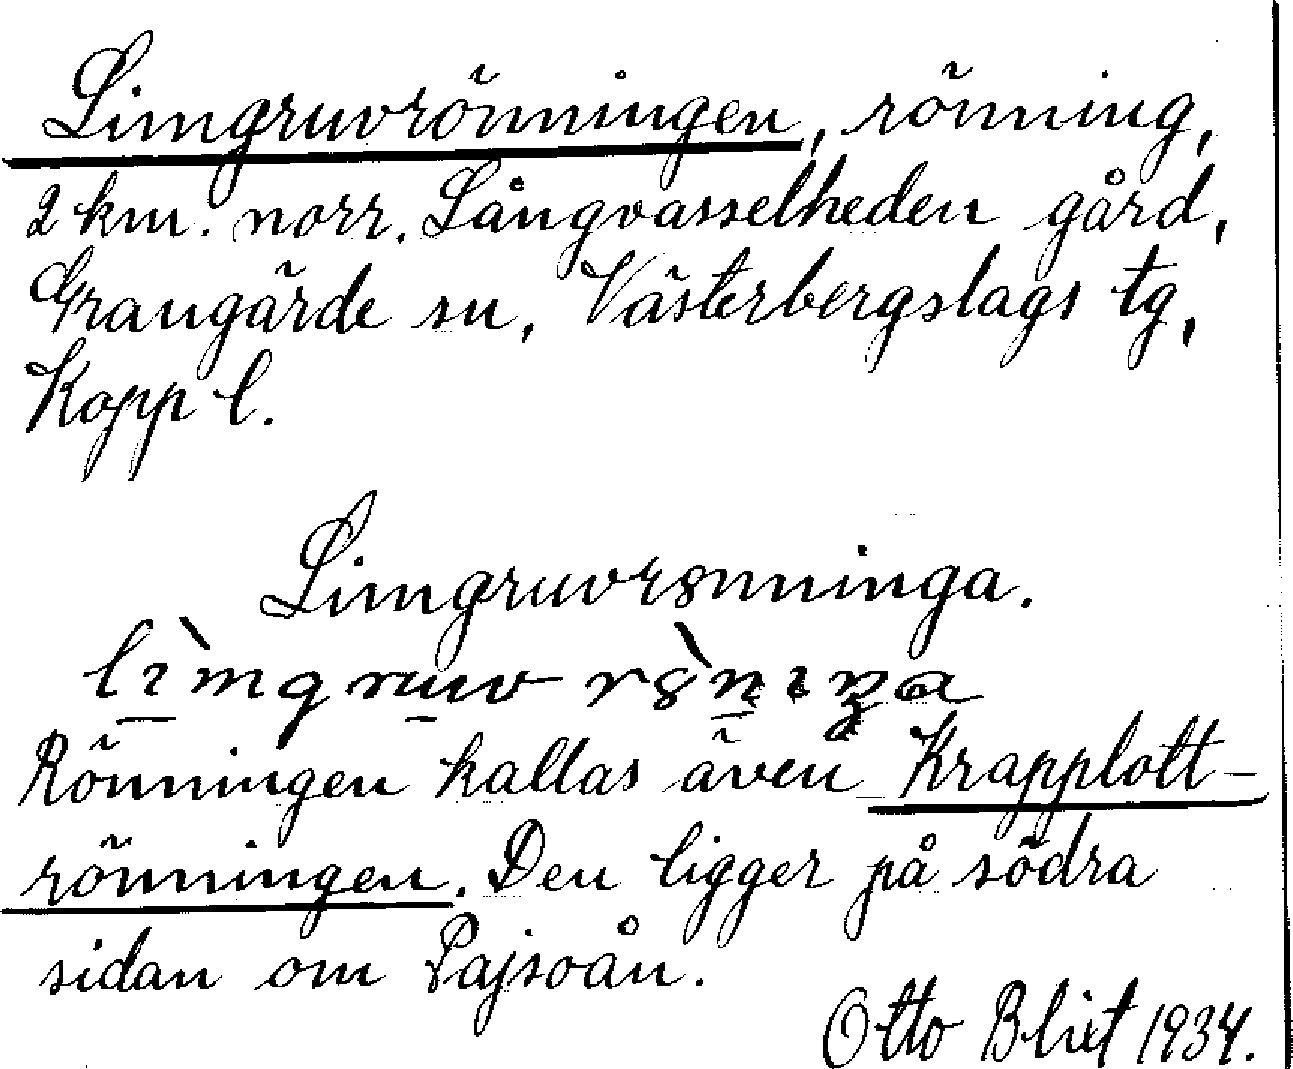 Limgruvrönningen, rönning,
2 km. norr. Långvasselheden gård,
Grangärde sn, Västerbergslags tg,
Kopp l.
Limgruvrꞩnninga.
Rönningen kallas även Krapplott-
rönningen. Den ligger på södra
sidan om Pajsoån.
Otto Blixt 1934.